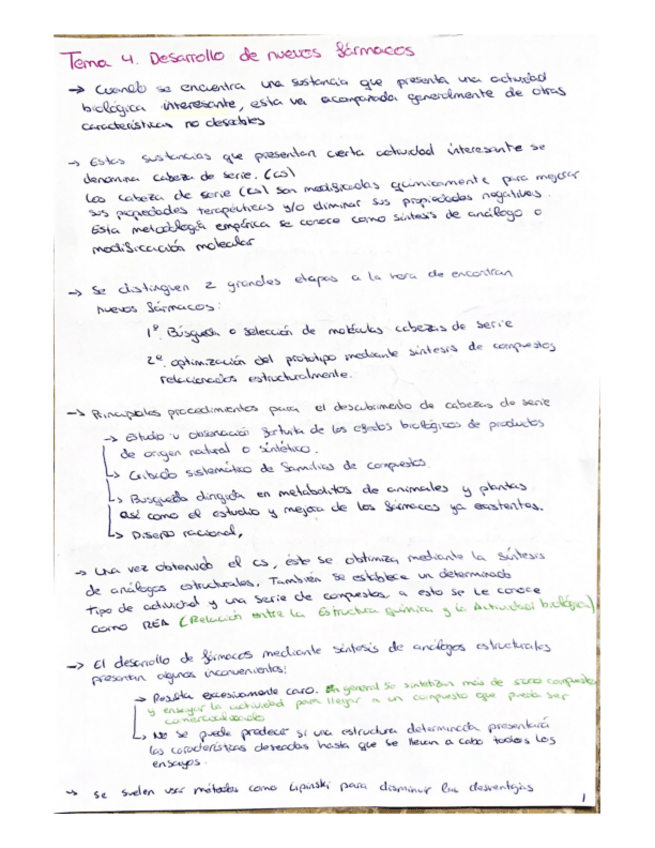 Tema 4. Desarrollo de nuevos fármacos
→ Cuando se encuentra una sustancia que presenta una actividad
biológica interesante, esta va acompañada generalmente de otras
características no deseables
→ Estas sustancias que presentan cierta actividad interesante se
denomina cabeza de serie. (CS)
Los cabeza de serie (CS) son modificadas químicamente para mejorar
sus propiedades terapéuticas y/o eliminar sus propiedades negativas.
Esta metodología empírica se conoce como síntesis de análogo o
modificación molecular
→ Se distinguen 2 grandes etapas a la hora de encontrar
nuevos fármacos:
1º. Búsqueda o selección de moléculas cabezas de serie
2º. optimización del prototipo mediante síntesis de compuestos
relacionados estructuralmente.
→ Principales procedimientos para el descubrimiento de cabezas de serie
→ Estudio u observación fortuita de los efectos biológicos de productos
de origen natural o sintético.
↳ Cribado sistemático de familias de compuestos.
↳ Busqueda dirigida en metabolitos de animales y plantas
así como el estudio y mejora de los fármacos ya existentes.
↳ Diseño racional.
→ Una vez obtenido el CS, éste se obtimiza mediante la síntesis
de análogos estructurales. También se establece un determinado
tipo de actividad y una serie de compuestos, a esto se le conoce
como REA (Relación entre la Estructura química y la Actividad biológica)
→ El desarrollo de fármacos mediante síntesis de análogos estructurales
presentan algunos inconvenientes:
→ Resulta excesivamente caro. En general se sintetizan más de 5000 compuestos
y ensayar la actividad para llegar a un compuesto que pueda ser
comercializado
↳ No se puede predecir si una estructura determinada presentará
las características deseadas hasta que se llevan a cabo todos los
ensayos.
→ se suelen usar métodos como Lipinski para disminuir las desventajas
1